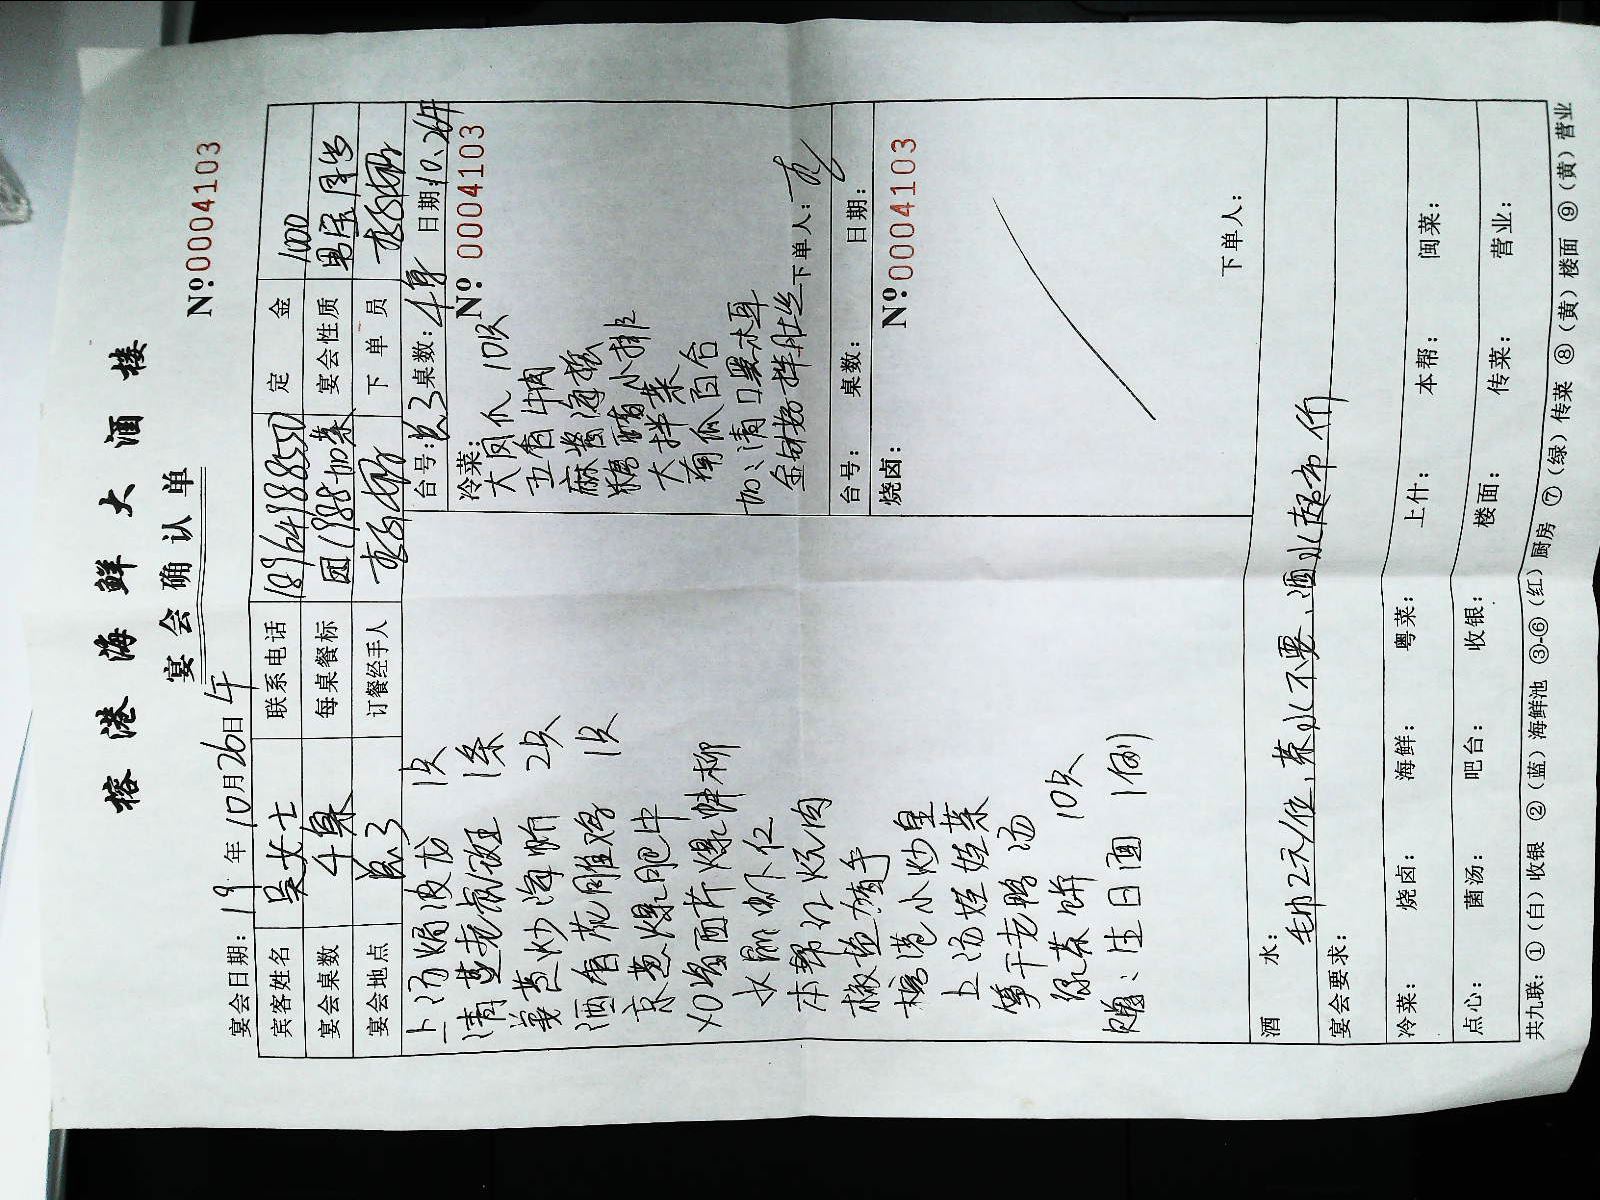 榕港海鲜大酒楼
宴会确认单
№:0004103
宴会日期: 19年10月26日午
宾客姓名 吴女士 联系电话 18964988550 定金 1000
宴会桌数 4桌 每桌餐标 1988加菜 宴会性质 男宝周岁
宴会地点 订餐经手人 下单员
上汤焗波龙 1只
清蒸老虎斑 1条
姜葱炒海蟹 2只
酒香花雕鸡 1只
京葱爆肥牛
XO酱西芹爆蚌柳
水晶虾仁
本帮红烧肉
椒盐猪手
榕港小炒皇
上汤娃娃菜
笋干老鸭汤
绿茶饼 10只
赠:生日面 1例
台号: 桌数: 4桌 日期: 10.26午
冷菜: №:0004103
大凤爪 10只
五香牛肉
麻酱海蜇
糖醋小排
大拌菜
南瓜百合
加:清口黑木耳
金针菇拌肚丝
下单人:
台号: 桌数: 日期:
烧卤: №:0004103
下单人:
酒水: 毛巾2元/位、茶水不要、酒水超市价
宴会要求:
冷菜: 烧卤: 海鲜: 粤菜: 上什: 本帮: 闽菜:
点心: 菌汤: 吧台: 收银: 楼面: 传菜: 营业:
共九联: ①(白)收银 ②(蓝)海鲜池 ③-⑥(红)厨房 ⑦(绿)传菜 ⑧(黄)楼面 ⑨(黄)营业